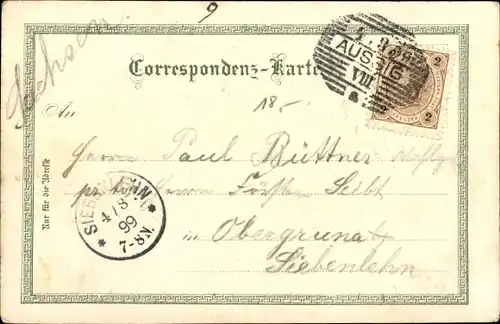 9
Sachsen
Correspondenz-Karte
AUSSIG
VIII
2 2
An
18.-
Herrn Paul Büttner
Herrn Förster Seibt
Nur für die Adresse
SIEBENLEHN
4/8
99
7-8N.
in Obergruna
Siebenlehn